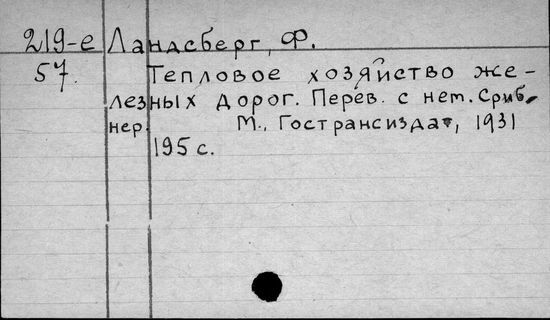 219-е Ландсберг, Ф.
57. Тепловое хозяйство же-
лезных дорог. Перев. с нем. Сриб,
нер. М., Гострансиздат, 1931
195 с.